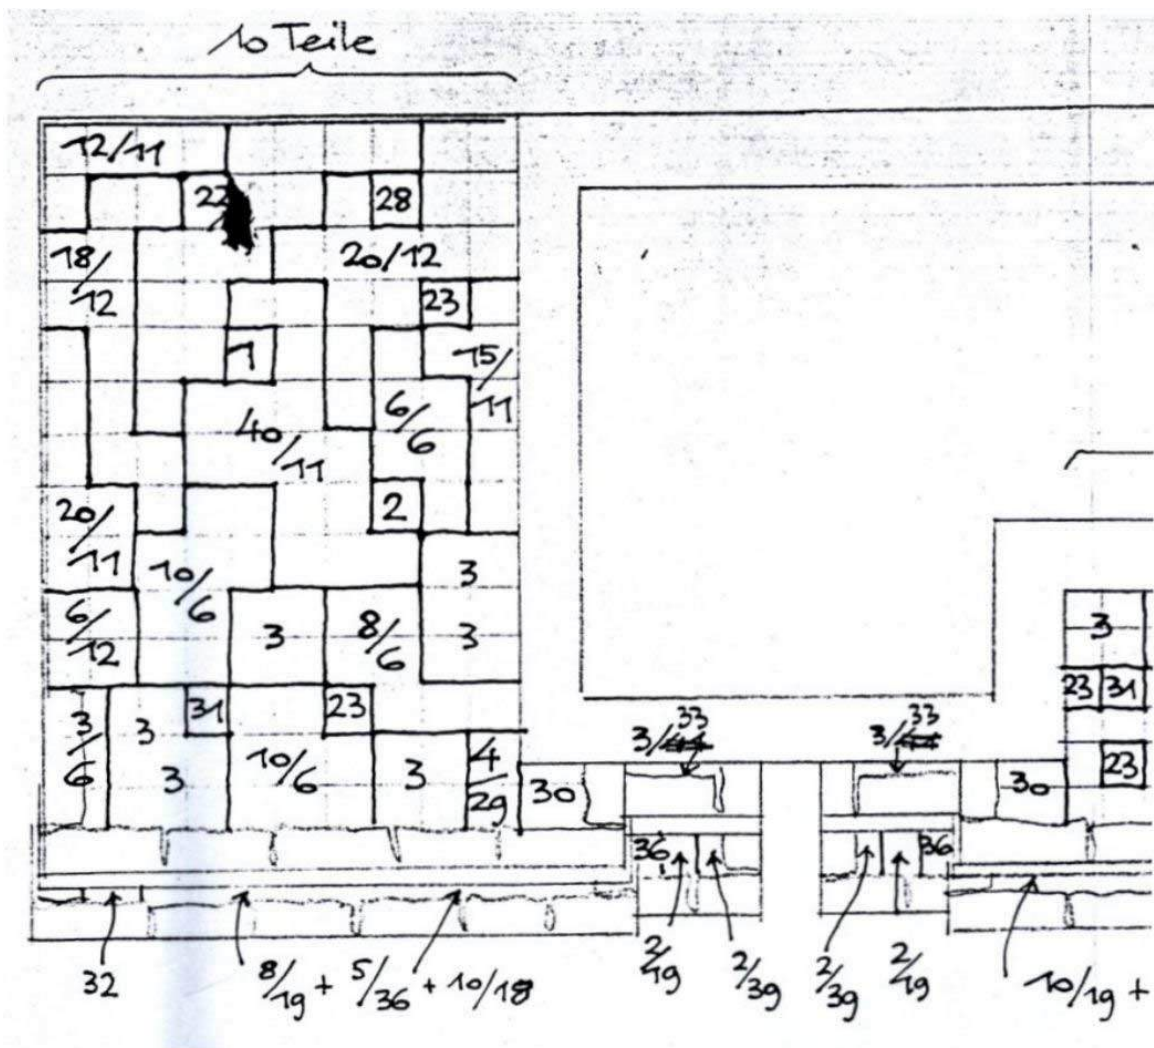 10 Teile
12/11
22
28
18/12
20/12
23
1
15/11
6/6
40/11
2
20/11
10/6
3
6/12
3
8/6
3
3
31
23
3/6
3
3
10/6
3
4/29
30
33
3/
33
3/
30
3
23
31
23
36
36
32
8/19 + 5/36 + 10/18
2/19
2/39
2/39
2/19
10/19 +